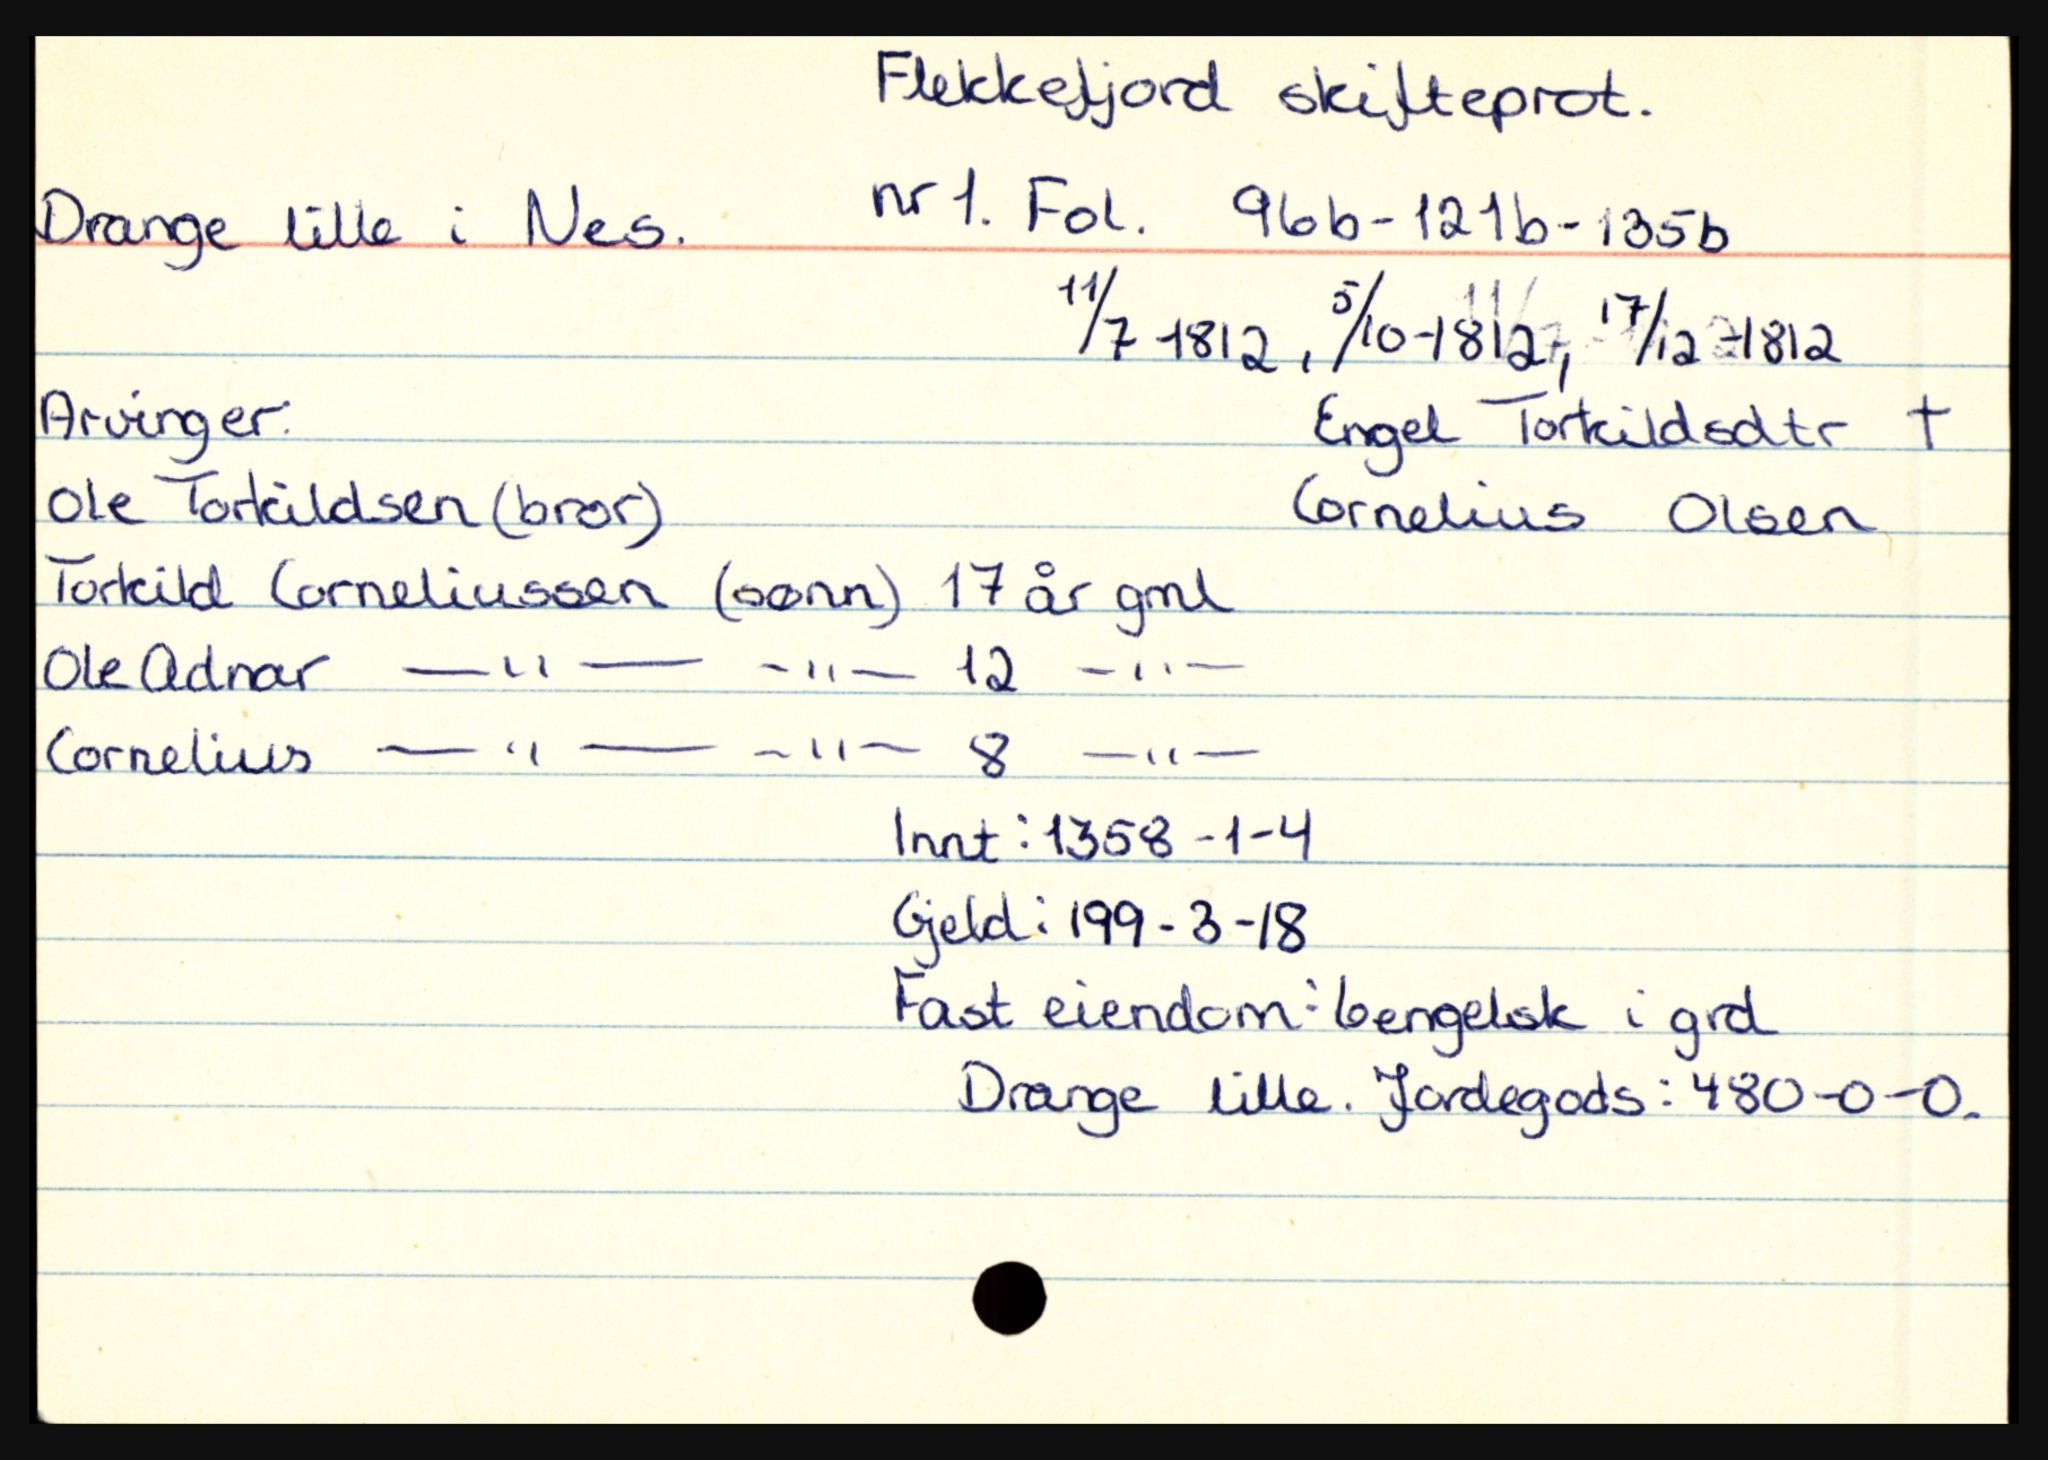 Flekkefjord skifteprot.
Drange lille i Nes. nr 1. Fol. 96b-121b-135b
11/7-1812, 5/10-1812, 17/12-1812
Arvinger: Engel Torkildsdtr †
Ole Torkildsen (bror) Cornelius Olsen
Torkild Corneliussen (sønn) 17 år gml
Ole Adnar — " — - " - 12 - " -
Cornelius — " — - " - 8 - " -
Innt: 1358-1-4
Gjeld: 199-3-18
Fast eiendom: bengelsk i grd
Drange lille. Jordegods: 480-0-0.